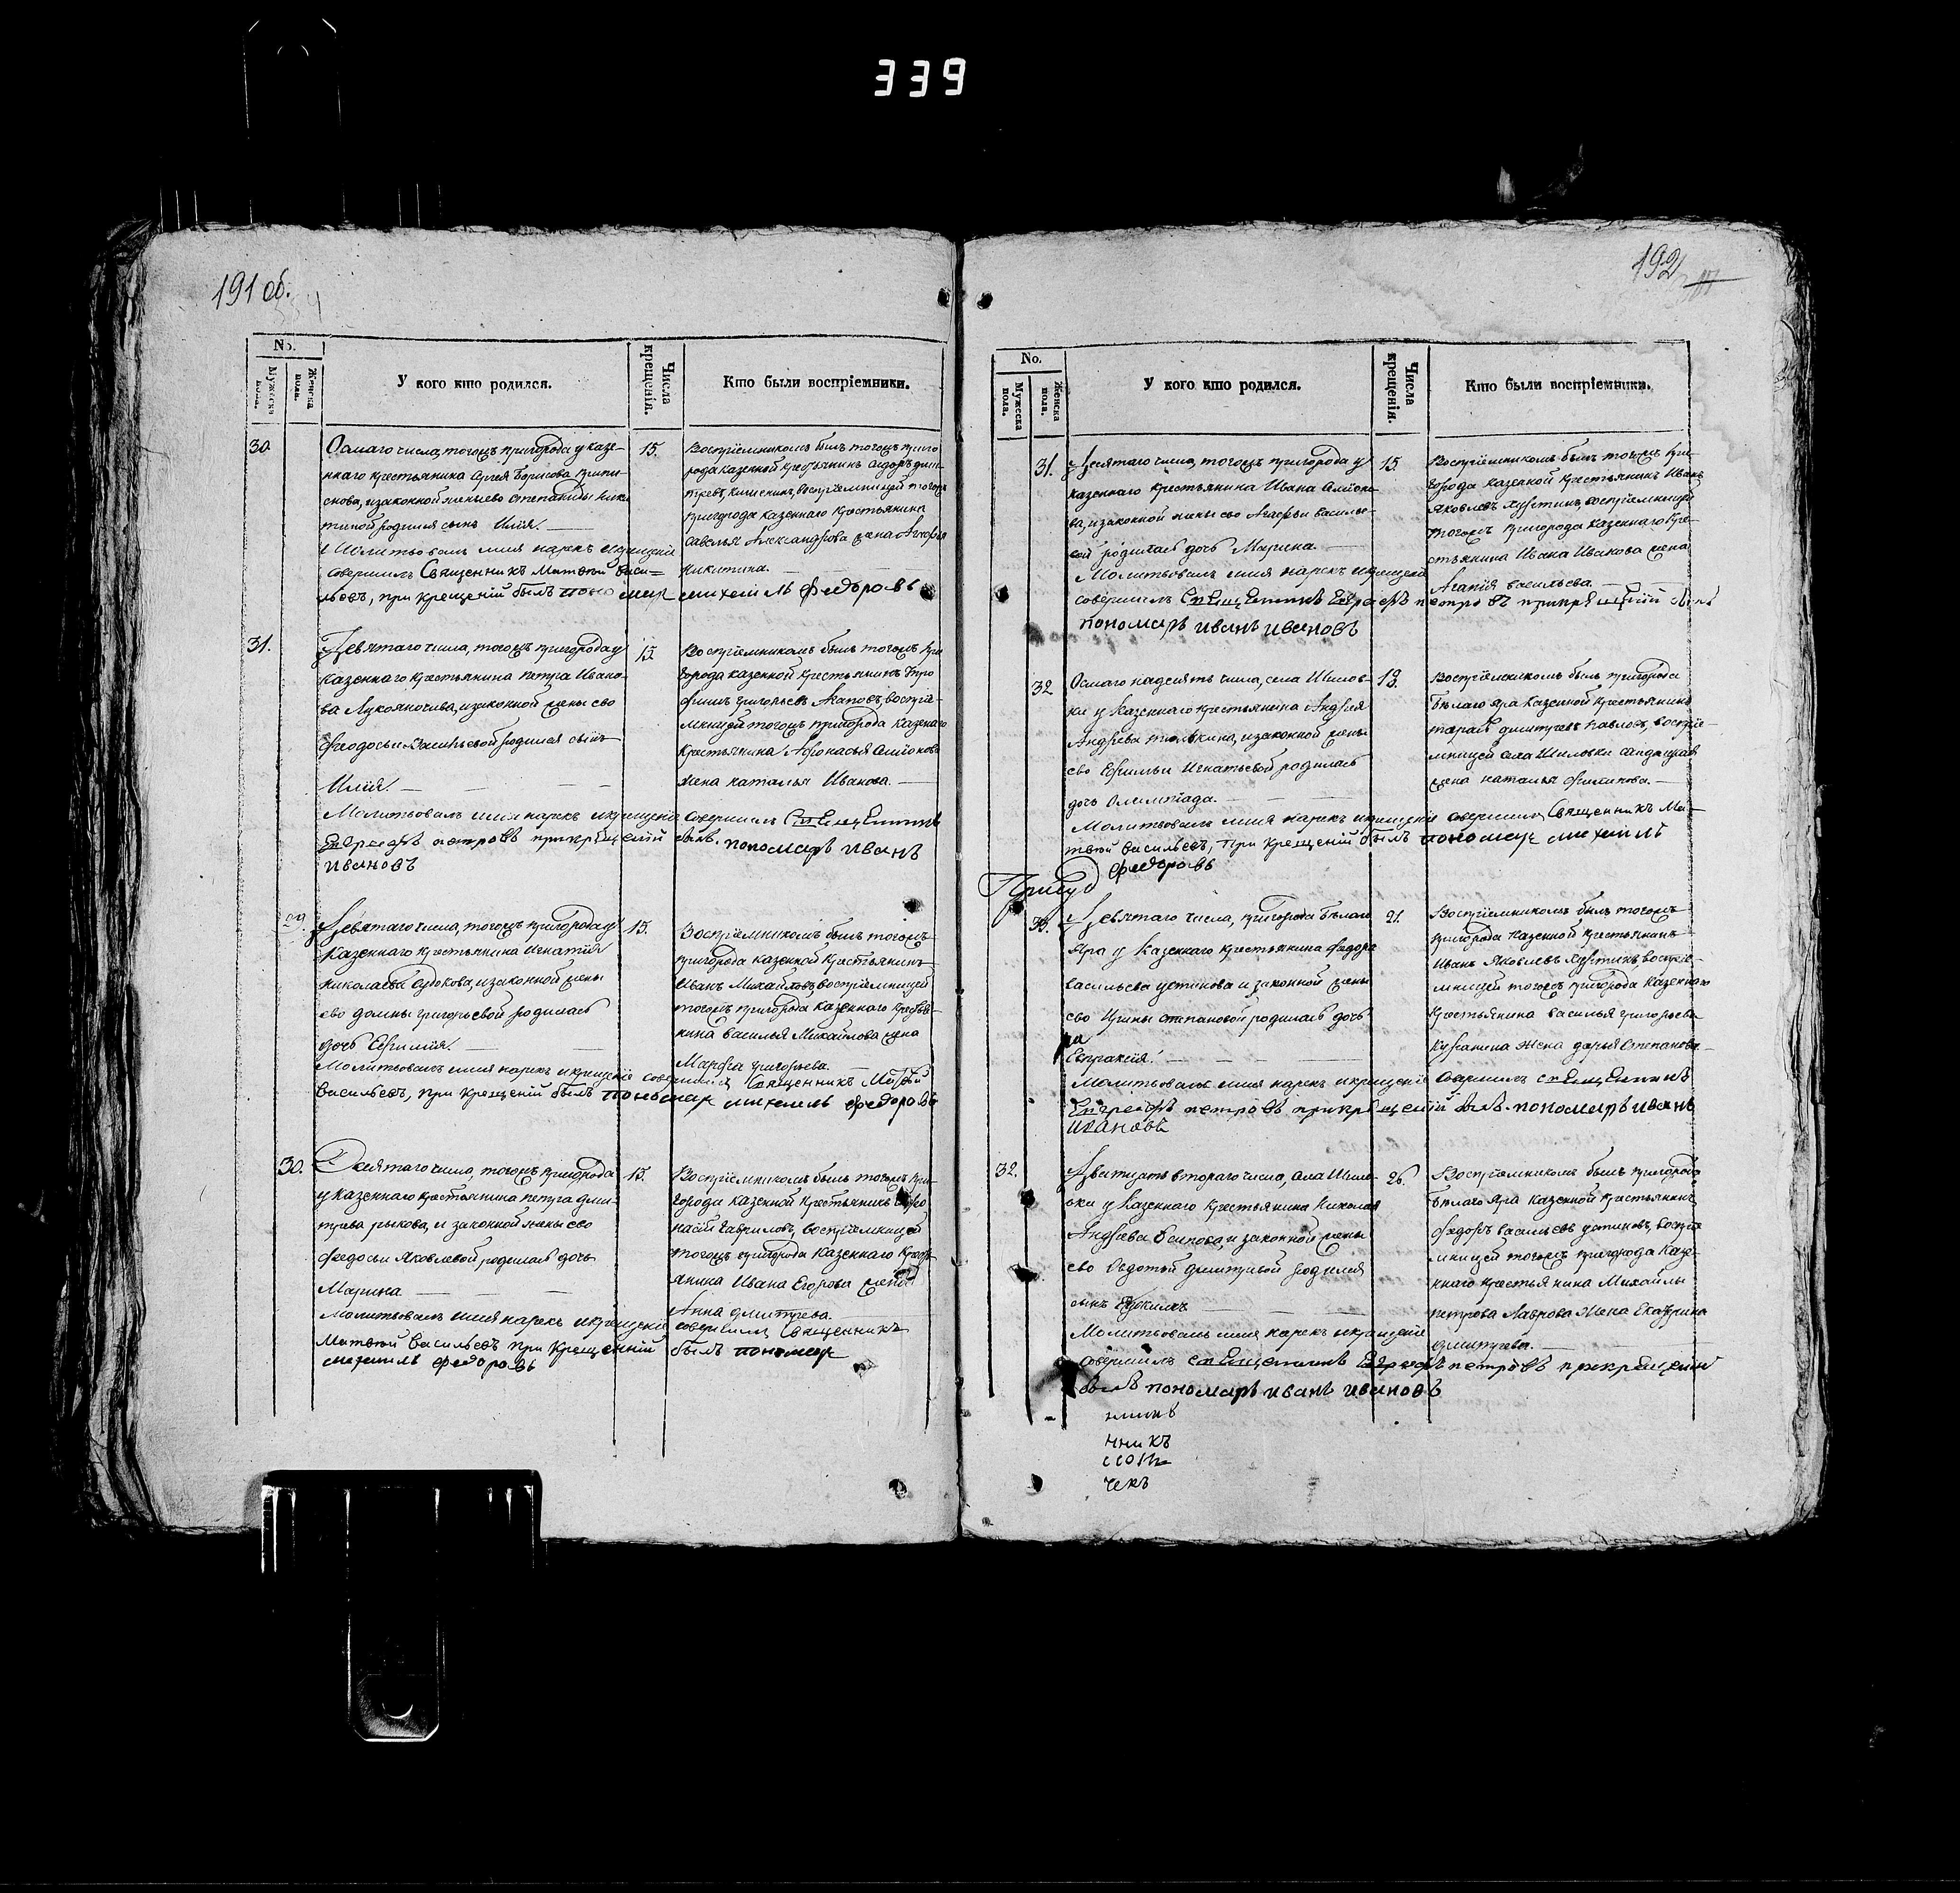 339
191 об.
No.
Мужеска пола.
Женска пола.
У кого кто родился.
Числа крещенія.
Кто были воспріемники.
30.
Осмаго числа, тогожъ пригорода у казе-
ннаго крестьянина Сергея Борисова
снова, и законной жены ево Степаниды Ники
тиной родился сынъ Илія.
Молитвовалъ имя нарекъ и крещеніе
совершилъ Священникъ Матвей Васи=
льевъ, при крещеніи былъ пономар михеилъ федоровъ
15.
Воспріемникомъ былъ тогожъ приго
рода казенной крестьянинъ
воспріемницей тогожъ
пригорода казеннаго крестьянина
Савелья Александрова жена Агафья
Никитина.
31.
Девятаго числа, тогожъ пригорода у
казеннаго крестьянина Петра Ивано-
ва Лукояночева, и законной жены ево
Феодосьи Васильевой родился сынъ
Илія.
Молитвовалъ имя нарекъ и крещеніе совершилъ Священникъ
Евграфъ петровъ при крещеніи былъ пономарь иванъ
ивановъ
15.
Воспріемникомъ былъ тогожъ при
города казенной крестьянинъ Тро
фимъ Григорьевъ Агаповъ, воспріе-
мницей тогожъ пригорода казеннаго
крестьянина Афонасья Симонова
жена Наталья Иванова.
29.
Девятаго числа, тогожъ пригорода у
казеннаго крестьянина Игнатия
Николаева Судокова, и законной жены
ево Домны Григорьевой родилась
дочь Ефимия.
Молитвовалъ имя нарекъ и крещеніе совершилъ Священникъ Матвей
Васильевъ, при крещеніи былъ пономар михеилъ федоровъ
15.
Воспріемникомъ былъ тогожъ
пригорода казенной крестьянинъ
Иванъ Михайловъ, воспріемницей
тогожъ пригорода казеннаго крестья-
нина Василья Михайлова жена
Марфа Григорьева.
30.
Десятаго числа, тогожъ пригорода
у казеннаго крестьянина Петра Дми-
трева Рыкова, и законной жены ево
Федосьи Яковлевой, родилась дочь
Марина
Молитвовалъ имя нарекъ и крещеніе совершилъ Священникъ
Матвей Васильевъ при крещеніи былъ пономар
михеилъ федоровъ
15.
Воспріемникомъ былъ тогожъ при-
города казенной крестьянинъ
насій Гавриловъ, воспріемницей
тогожъ пригорода казеннаго кресть-
янина Ивана Егорова жена
Анна Дмитрева.
192
No.
Мужеска пола.
Женска пола.
У кого кто родился.
Числа крещенія.
Кто были воспріемники.
31.
Десятаго числа, тогожъ пригорода у
казеннаго крестьянина Ивана Симоно-
ва, и законной жены ево Агафьи Василье-
вой родилась дочь Марина
Молитвовалъ имя нарекъ и крещеніе
совершилъ Священникъ Евграфъ петровъ при крещеніи былъ
пономарь иванъ ивановъ
15.
Воспріемникомъ былъ тогожъ при-
города казенной крестьянинъ Иванъ
Яковлевъ воспріемницей
тогожъ пригорода казеннаго кре-
стьянина Ивана Иванова жена
Агапія Васильева.
32
Осмаго надесять числа, села Шилов-
ки у казеннаго крестьянина Андрея
Андреева и законной жены
ево Ефимьи Игнатьевой родилась
дочь Олимпіада.
Молитвовалъ имя нарекъ и крещеніе совершилъ Священникъ Ма-
твей Васильевъ, при крещеніи былъ пономар михеилъ
федоровъ
19.
Воспріемникомъ былъ пригорода
Белаго яра казенной крестьянинъ
Тарасъ Дмитревъ Павловъ, воспріе-
мницей села Шиловки
жена Наталья Филипова.
33.
Девятаго числа, пригорода Белаго
Яра у казеннаго крестьянина Федора
Васильева Устинова и законной жены
ево Ирины Степановой родилась дочь
Евпраксия.
Молитвовалъ имя нарекъ и крещеніе совершилъ Священникъ
Евграфъ петровъ при крещеніи былъ пономарь иванъ
ивановъ
21.
Воспріемникомъ былъ тогожъ
пригорода казенной крестьянинъ
Иванъ Яковлевъ воспріе-
мницей тогожъ пригорода казеннаго
крестьянина Василья Григорьева
жена Дарья Степанова
32.
Двитцать втораго числа, села Шило-
вки у казеннаго крестьянина Николая
Андреева и законной жены
ево Федотьи Дмитривой родился
сынъ
Молитвовалъ имя нарекъ и крещеніе
совершилъ священникъ Евграфъ петровъ при крещеніи
былъ пономарь иванъ ивановъ
26.
Воспріемникомъ былъ пригорода
Белаго Яра казенной крестьянинъ
Федоръ Васильевъ Устиновъ, воспріе
мницей тогожъ пригорода казе-
ннаго крестьянина Михайлы
Петрова Лаврова жена Екатерина
Дмитрева.
нникъ
чекъ